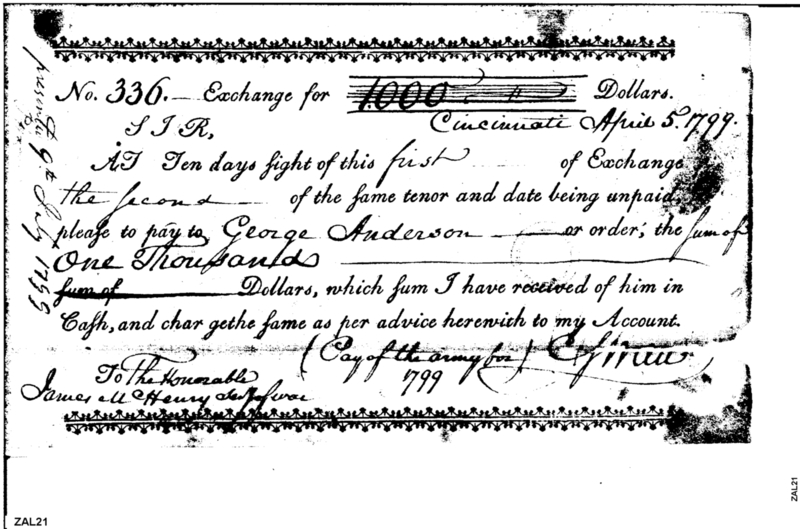 No. 336. Exchange for 1000 Dollars.
Cincinnati April 5. 1799.
SIR,
AT Ten days ſight of this first of Exchange
the second of the ſame tenor and date being unpaid
pleaſe to pay to George Anderson or order; the Sum of
One Thousands
ſum of Dollars, which ſum I have received of him in
Caſh, and char gethe ſame as per advice herewich to my Account.
(Pay of the army for
1799)
To The Honorable
James McHenry Sec. of war
9th July 1799
ZAL21
ZAL21